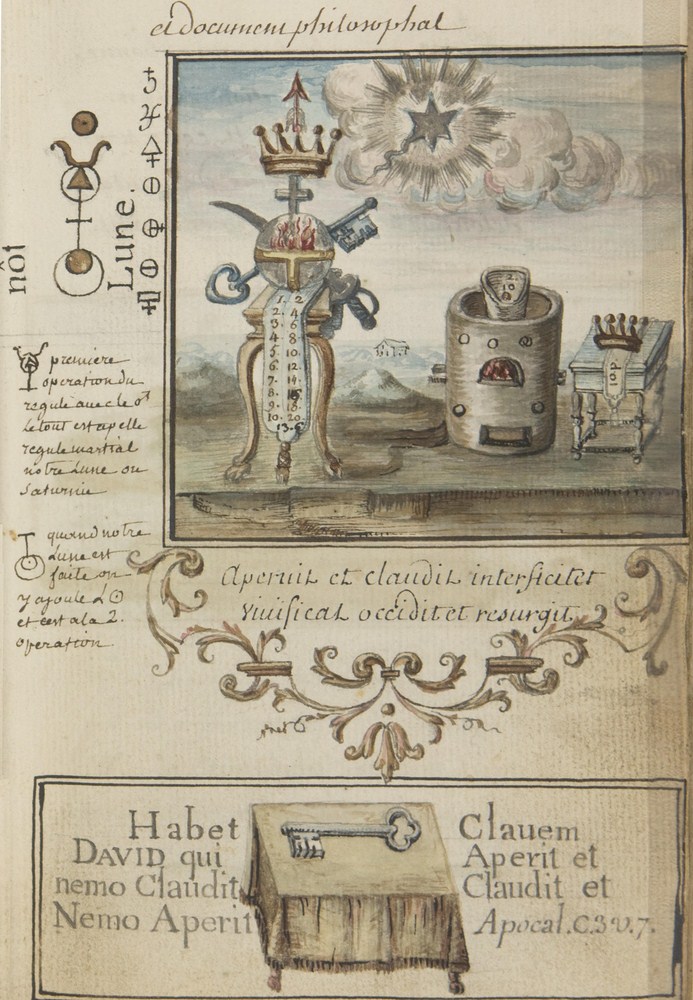 et document philosophal
nôt
Lune.
1. 2
2. 4
3. 6
4. 8
5. 10
6. 12
7. 14
8. 16
9. 18
10. 20
13.6
2.
10
10 d
premiere
operation du
regule avec le ♂
le tout est apelle
regule martial
notre Lune ou
Saturnie
quand notre
Lune est
faite on
y ajoute L ☉
et c'est a la 2.
operation
Aperuit et claudit interficit et
Vivificat occidit et resurgit
Habet Clauem
DAVID qui Aperit et
nemo Claudit Claudit et
Nemo Aperit Apocal. C.3 v. 7.